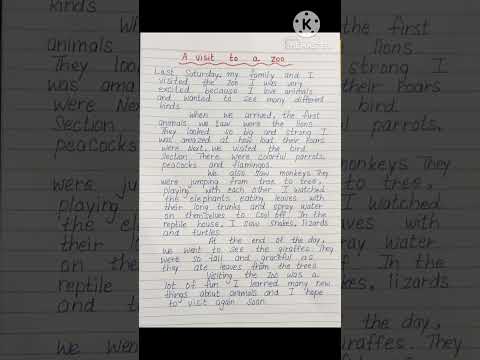 K
A visit to a zoo
Last Saturday, my family and I
visited the zoo I was very
excited because I love animals
and wanted to see many different
kinds
When we arrived, the first
animals we saw were the lions
They looked so big and strong I
was amazed at how their Roars
were Next, we visited the bird
Section There were colorful parrots,
peacocks and flamingos.
We also saw monkeys They
were jumping from tree to tree,
playing with each other I watched
the elephants eating leaves with
their long trunks and spray water
on themselves to cool off. In the
reptile house, I saw snakes, lizards
and turtles
At the end of the day,
we went to see the giraffes. They
were so tall and graceful as
they ate leaves from the trees
Visiting the zoo was a
lot of fun I learned many new
things about animals and I hope
to visit again soon.